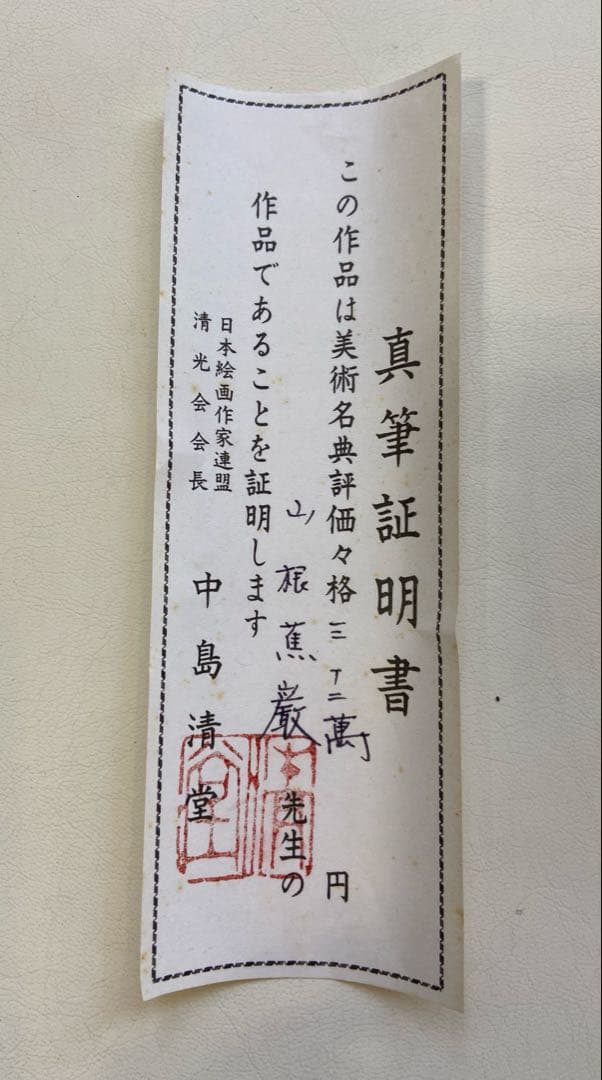 真筆証明書
この作品は美術名典評価々格三十二萬円
山根蕉巌先生の
作品であることを証明します
日本絵画作家連盟
清光会会長
中島清堂